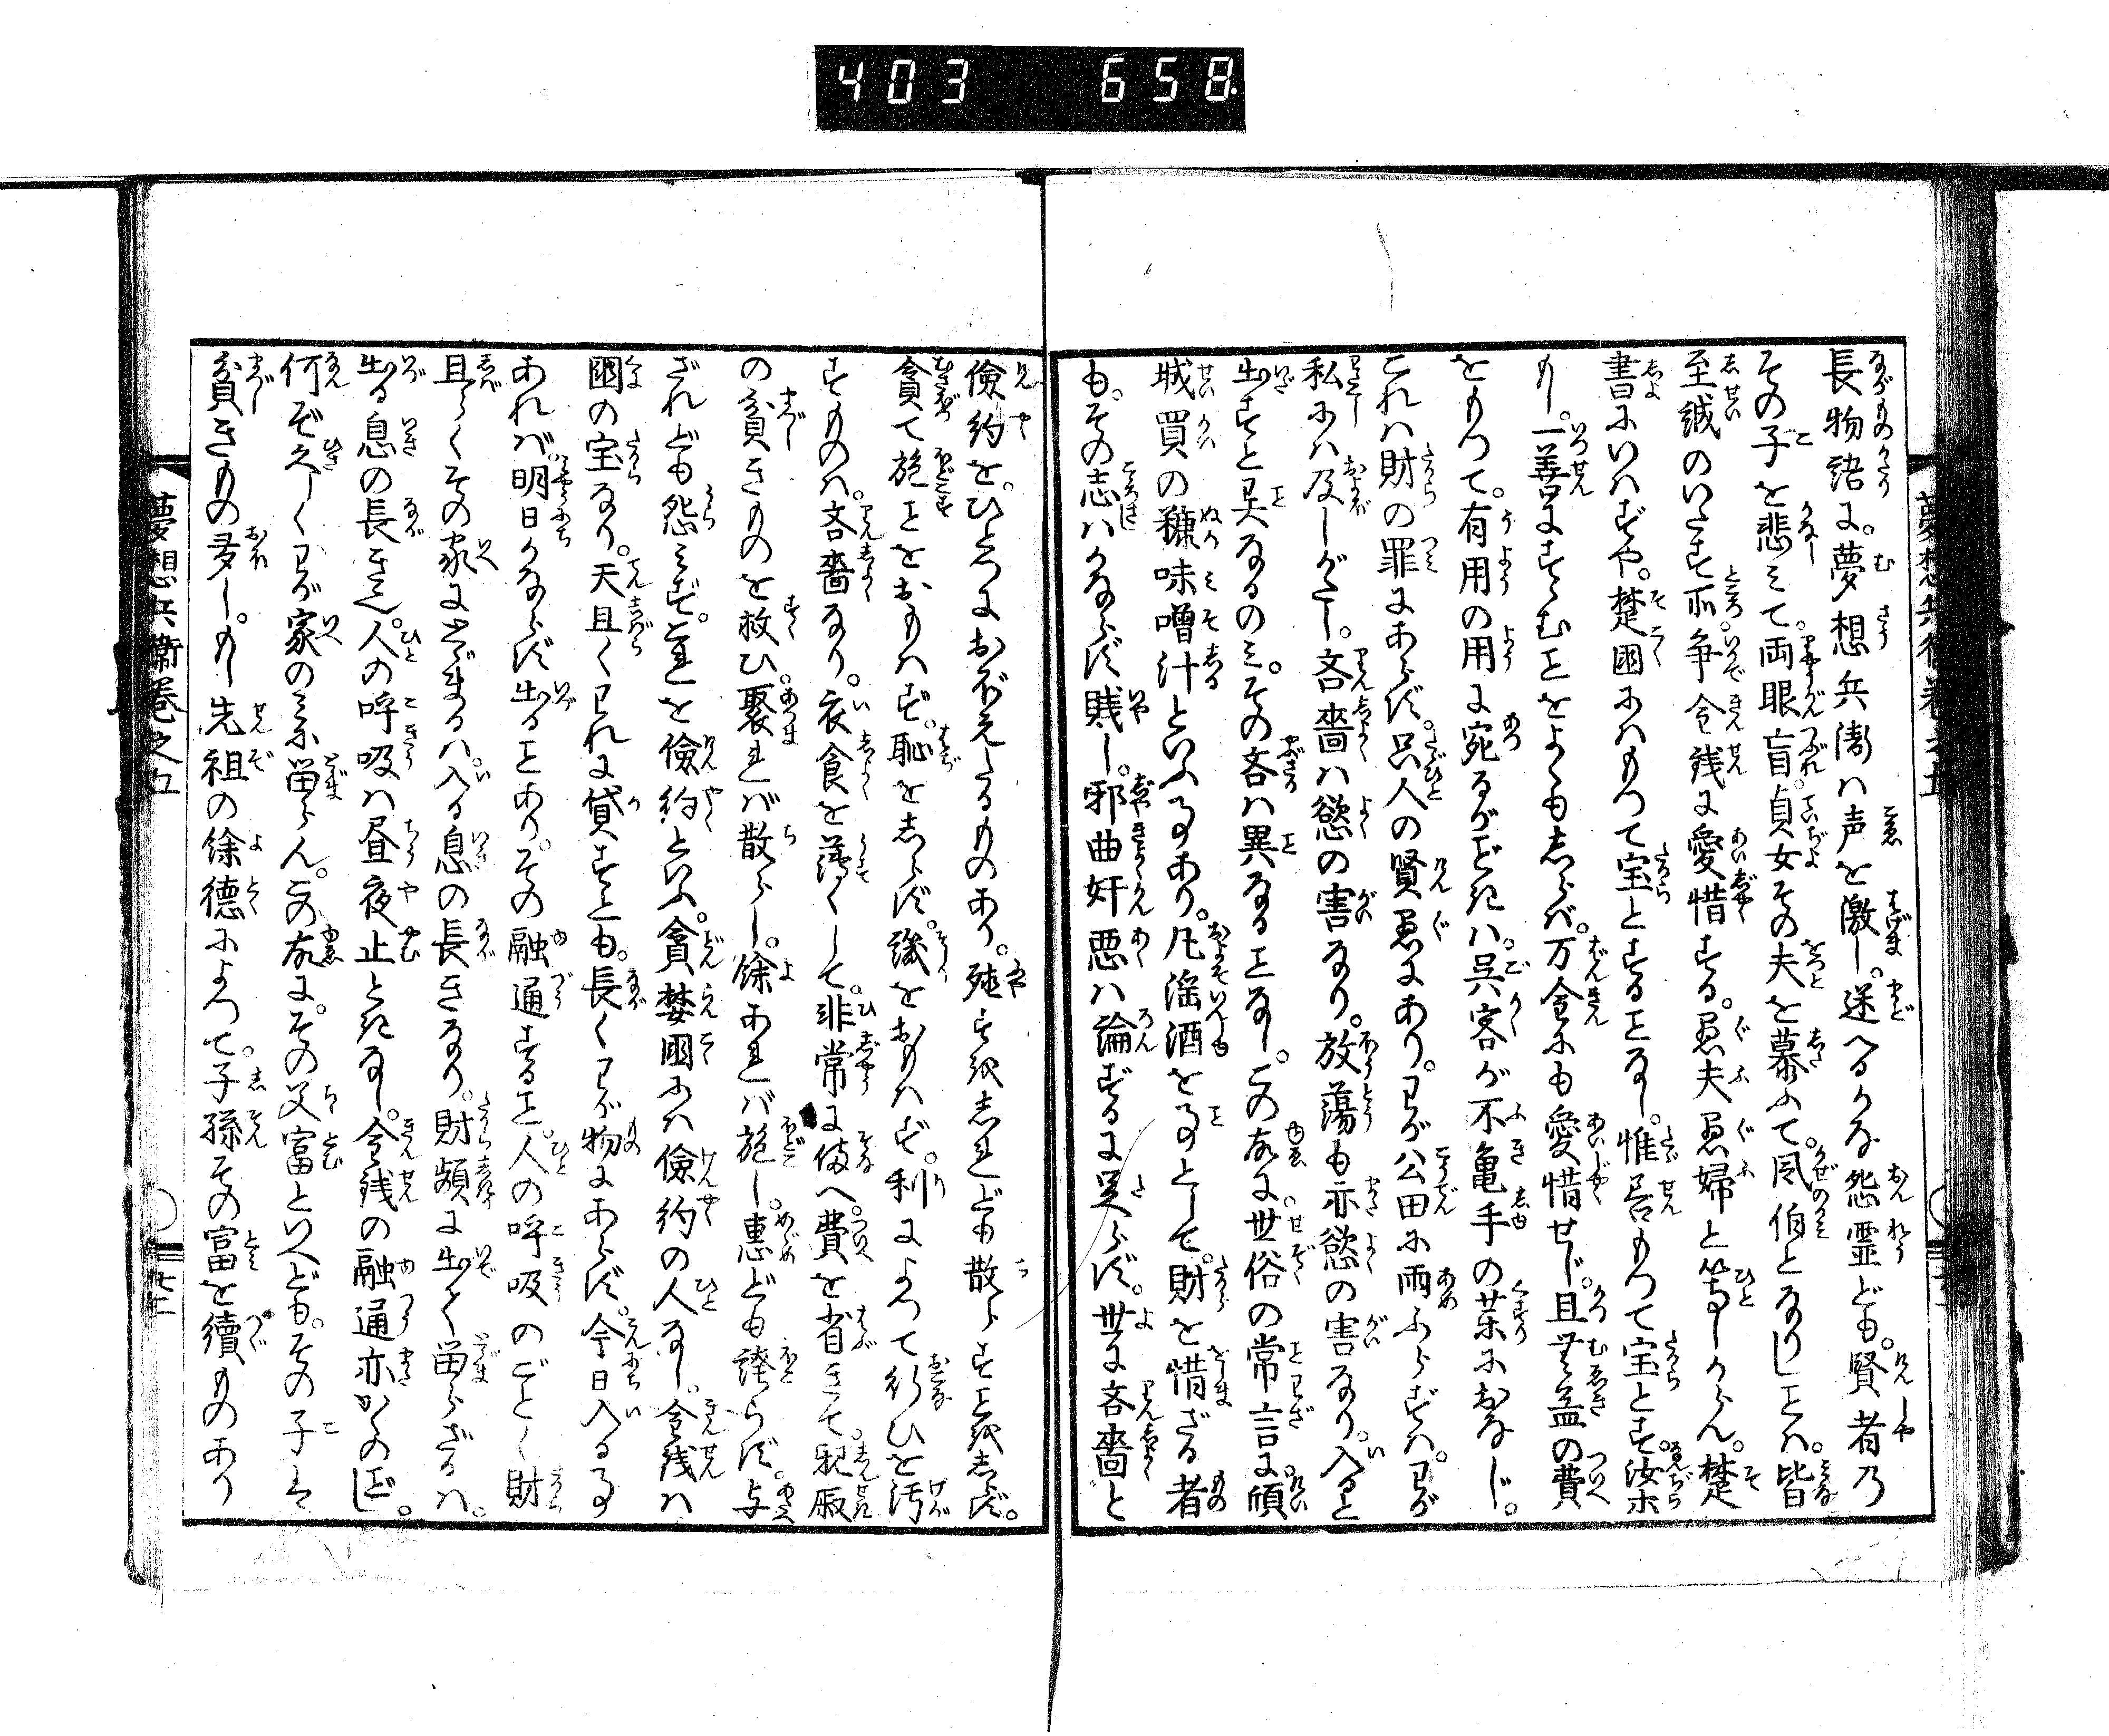 403 658
長物語に。夢想兵衛ハ声を激し。迷へるかな怨霊ども。賢者乃
その子を悲ミて。両眼盲。貞女その夫を慕ふて。風伯となりしことハ。皆
至誠のいたす所。争金銭に愛惜する。愚夫愚婦と等しからん。楚
書にいハずや。楚国にハもつて宝とすることなし。惟善もつて宝とす。汝等
もし。一善にすゝむことをよくもしらバ。万金にも愛惜せじ。且無益の費
をもつて。有用の用に宛るがごときハ。呉客が不亀手の薬におなじ。
これハ財の罪にあらず。只人の賢愚にあり。わが公田に雨ふらずハ。わが
私にハ及しがたし。吝嗇ハ慾の害なり。放蕩も亦慾の害なり。入ると
出すと異なるのミ。その吝ハ異なることなし。この故に。世俗の常言に傾
城買の糠味噌汁といふ事あり。凡淫酒を事として。財を惜ざる者
も。その志ハかならず賎し。邪曲奸悪ハ論ずるに足らず。世に吝嗇と
倹約を。ひとつにおぼえたるものあり。殖すをしれども散らすことをしらず。
貪て施ことをおもハず。恥をしらず。譏をおもハず。利によつて行ひを汚
すものハ。吝嗇なり。衣食を薄くして。非常に備へ。費を省きて。親族
の貧きものを救ひ。聚れバ散らし。餘あれバ施し。恵ども誇らず。与
ざれども怨ミず。これを倹約といふ。貪婪国にハ倹約の人なし。金銭ハ
国の宝なり。天且くわれに貸すとも。長くわが物にあらず。今日入る事
あれバ。明日かならず出ることあり。その融通すること。人の呼吸のごとく財
且らくその家にとゞまるハ。入る息の長きなり。財頻に出て留らざるハ。
出る息の長きなり。人の呼吸ハ昼夜止ときなし。金銭の融通亦かくのごとし。
何ぞ久しくわが家のミに留らん。この故に。その父富といへども。その子ハ
貧きもの多し。もし先祖の餘徳によつて。子孫その富を續ものあり
夢想兵衛巻之五